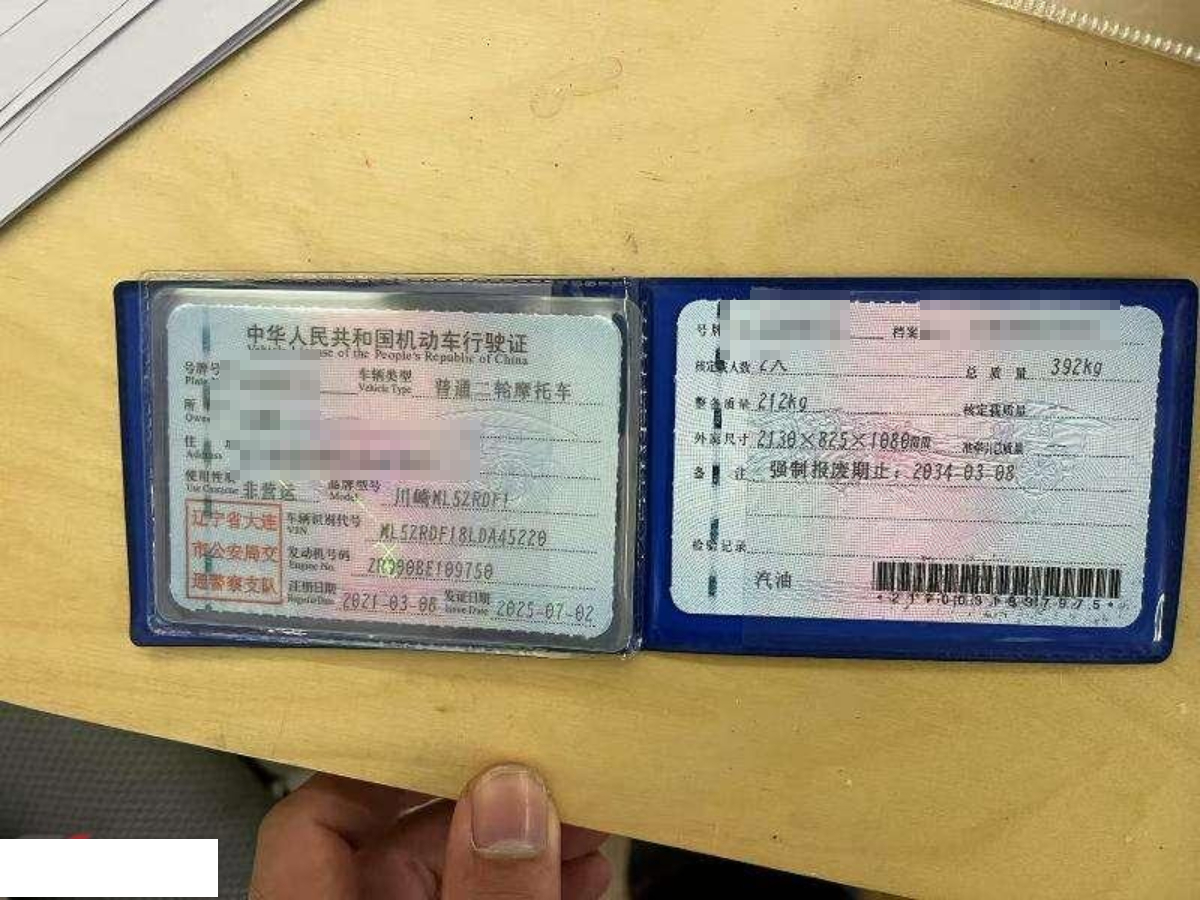 中华人民共和国机动车行驶证
of the People's Republic of China
号牌号
车辆类型 普通二轮摩托车
Vehicle Type
所
住
Address
使用性质 非营运 品牌型号 川崎ML5ZRDF1
Use Character Model
辽宁省大连
市公安局交
通警察支队
车辆识别代号 ML5ZRDF18LDA45220
VIN
发动机号码
Engine No.
注册日期 2021-03-08 发证日期 2025-07-02
Register Date Issue Date
号牌
档案
核定载人数 2人 总质量 392kg
整备质量 212kg 核定载质量
外廓尺寸 2130×825×1080mm 准牵引总质量
备注 强制报废期止：2034-03-08
检验记录
汽油